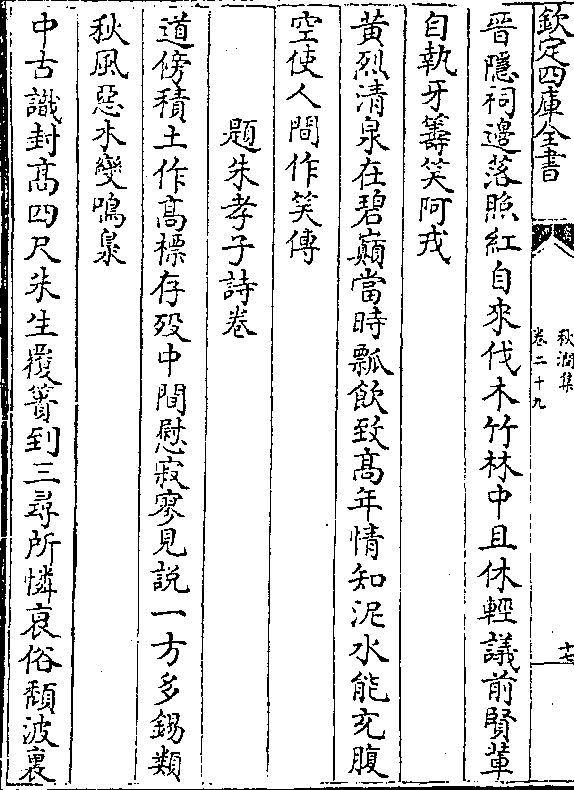 欽定四庫全書
秋澗集
卷二十九
十七
晉隱祠邊落照紅自來伐木竹林中且休輕議前賢輩
自執牙籌笑阿戎
黄烈清泉在碧巔當時瓢飲致髙年情知泥水能充腹
空使人間作笑傳
題朱孝子詩卷
道傍積土作髙標存殁中間慰寂寥見説一方多錫類
秋風惡木變鳴梟
中古識封髙四尺朱生覆簣到三尋所憐哀俗頽波裏